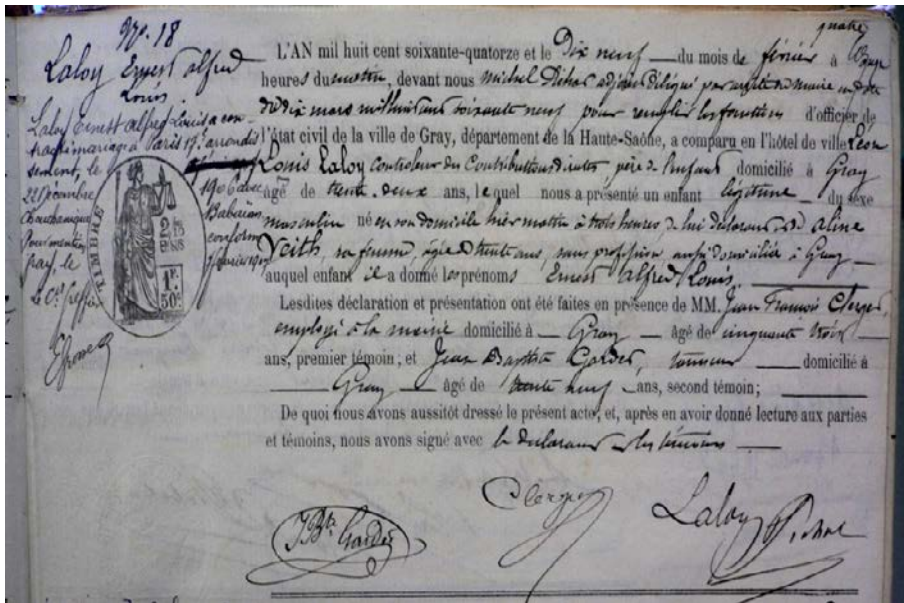 N°. 18
Laloy Ernest alfred
Louis.
Laloy Ernest Alfred Louis a con-
tracté mariage à Paris 17e arrondis
sement, le
22 Décembre 1906 avec
Gray, le
Le Cr. Greffier
TIMBRE
1F.
50c
quatre
L'AN mil huit cent soixante-quatorze et le Dix neuf du mois de février à
heures du matin, devant nous Michel Pichot adjoint délégué par arrêté du maire en date
du dix mars mil huit cent soixante neuf pour remplir les fonctions d'officier de
l'état civil de la ville de Gray, département de la Haute-Saône, a comparu en l'hôtel de ville Léon
Louis Laloy Controleur des Contributions directes, père de l'enfant domicilié à Gray
âgé de trente deux ans, lequel nous a présenté un enfant légitime du sexe
masculin né en son domicile hier matin à trois heures de lui déclarant et de aline
Veith, sa femme, âgée de trente ans, sans profession, aussi domiciliée à Gray
auquel enfant il a donné les prénoms Ernest alfred Louis
Lesdites déclaration et présentation ont été faites en présence de MM. Jean François Clerget
employé à la mairie domicilié à Gray âgé de cinquante trois
ans, premier témoin; et Jean Baptiste domicilié à
Gray âgé de trente neuf ans, second témoin;
De quoi nous avons aussitôt dressé le présent acte, et, après en avoir donné lecture aux parties
et témoins, nous avons signé avec le déclarant et les témoins
Clerget
Laloy